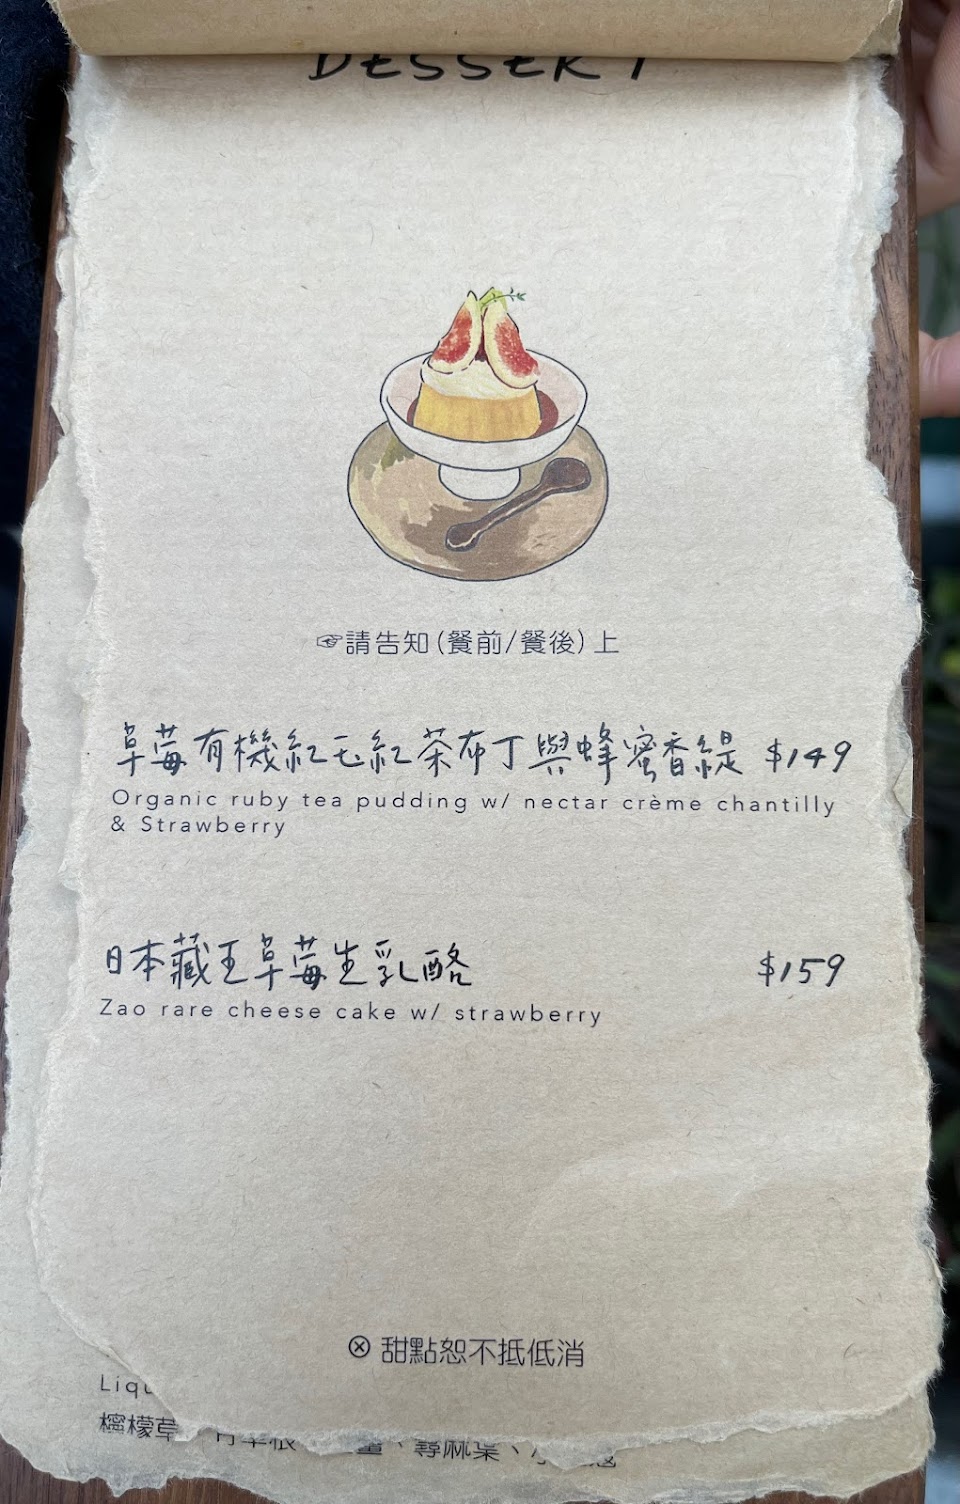 DESSERT
☞請告知(餐前/餐後)上
草莓有機紅玉紅茶布丁與蜂蜜香緹 $149
Organic ruby tea pudding w/ nectar crème chantilly
& Strawberry
日本藏王草莓生乳酪 $159
Zao rare cheese cake w/ strawberry
⊗ 甜點恕不抵低消
檸檬草
蕁麻葉、